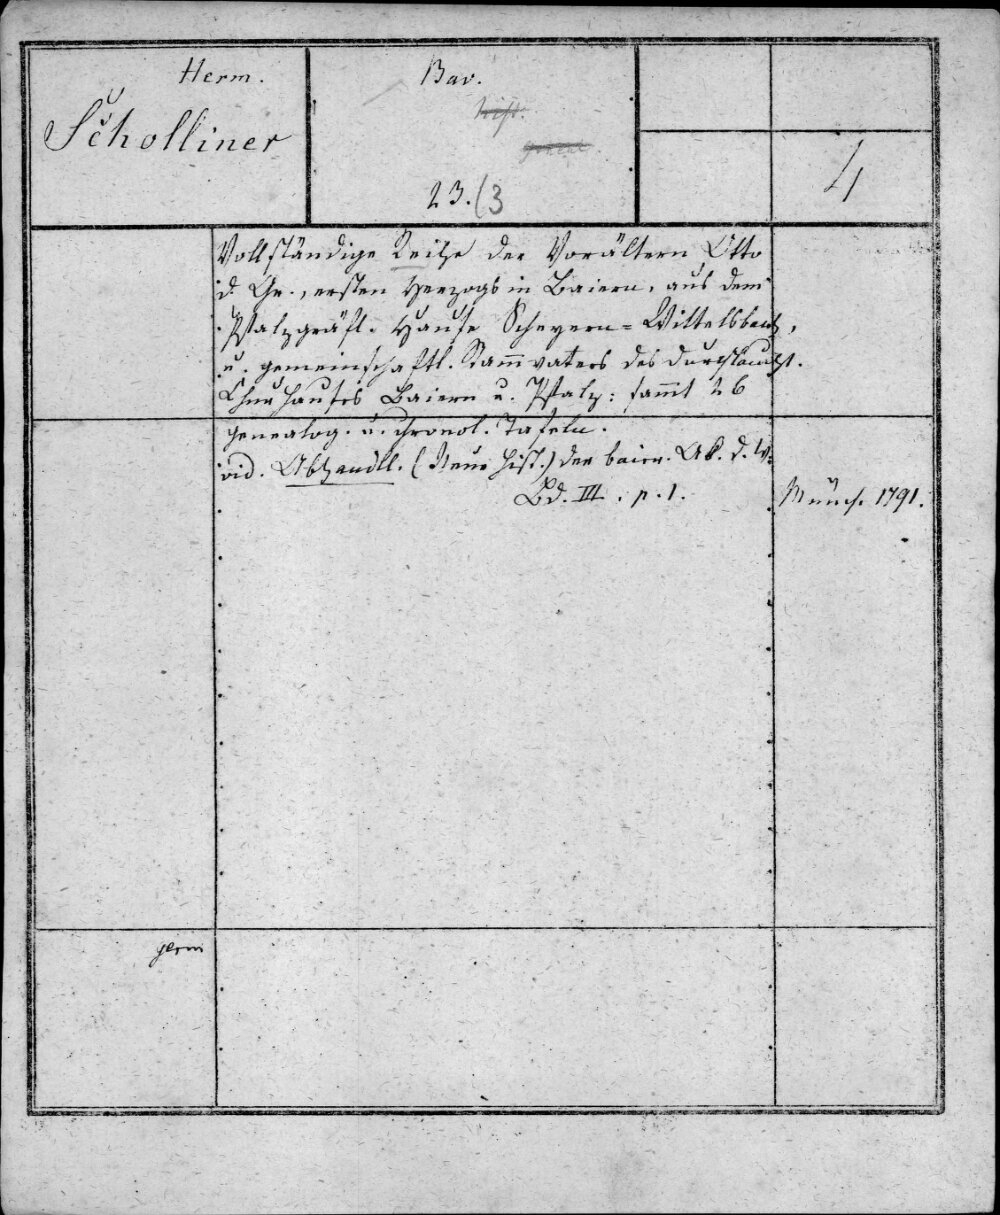 Herm.
Scholliner
Bav.
hist.
23.(3
4
Vollständige Reihe der Vorältern Otto
d. Gr., ersten Herzogs in Baiern, aus dem
Pfalzgräfl. Hause Scheyern=Wittelsbach,
u. gemeinschaftl. Stam̄vaters des durchlaucht.
Churhauses Baiern u. Pfalz: sam̄t 26
genealog. u. chronol. Tafeln.
vid. Abhandll. (Neue hist.) der baier. Ak. d. W.
Bd. III. p. 1.
Münch. 1791.
germ